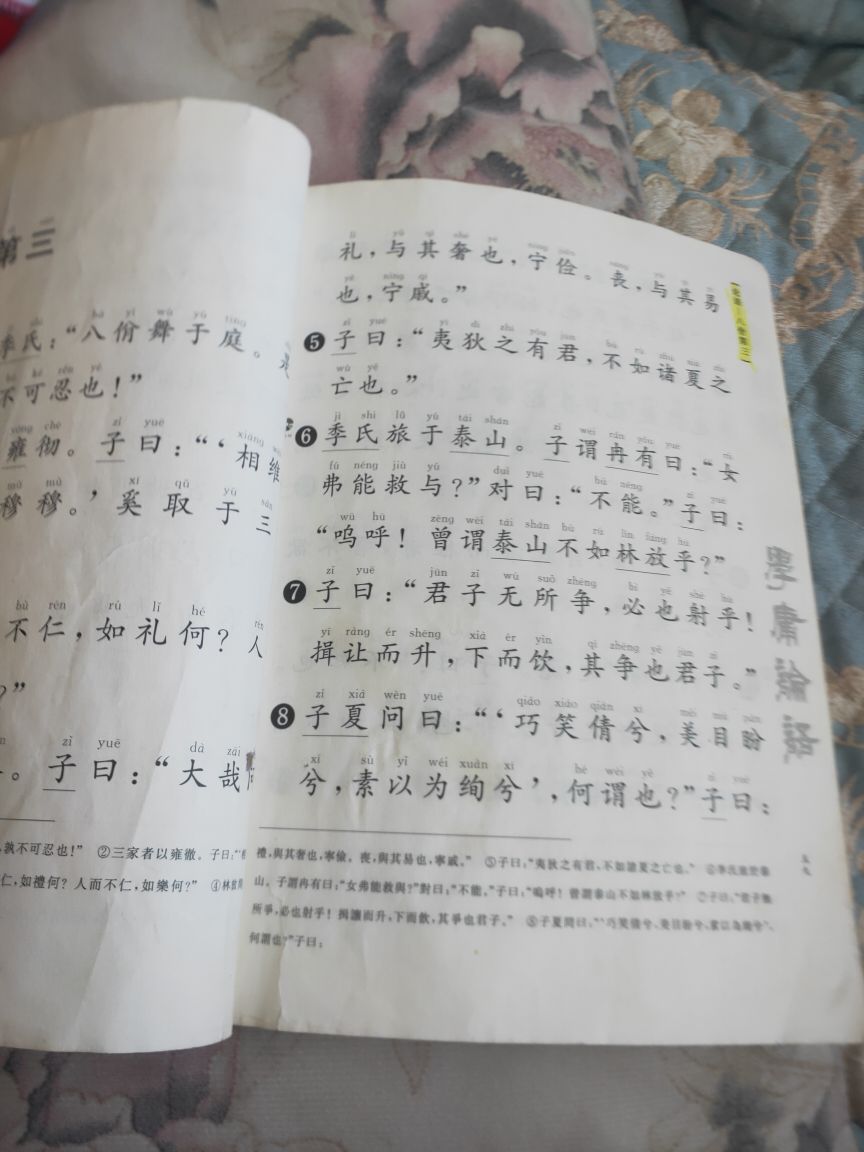 第三
季氏：“八佾舞于庭。是
不可忍也！”
雍彻。子曰：“‘相维
穆穆。’奚取于三
不仁，如礼何？人
？”
。子曰：“大哉
，孰不可忍也！” ②三家者以雍徹。子曰：“‘相
仁，如禮何？人而不仁，如樂何？” ④林放問
礼，与其奢也，宁俭。丧，与其易
也，宁戚。”
❺子曰：“夷狄之有君，不如诸夏之
亡也。”
❻季氏旅于泰山。子谓冉有曰：“女
弗能救与？”对曰：“不能。”子曰：
“呜呼！曾谓泰山不如林放乎？”
❼子曰：“君子无所争，必也射乎！
揖让而升，下而饮，其争也君子。”
❽子夏问曰：“‘巧笑倩兮，美目盼
兮，素以为绚兮’，何谓也？”子曰：
禮，與其奢也，寧儉。喪，與其易也，寧戚。” ⑤子曰：“夷狄之有君，不如諸夏之亡也。” ⑥季氏旅於泰
山。子謂冉有曰：“女弗能救與？”對曰：“不能。”子曰：“嗚呼！曾謂泰山不如林放乎？” ⑦子曰：“君子無
所爭，必也射乎！揖讓而升，下而飲，其爭也君子。” ⑧子夏問曰：“‘巧笑倩兮，美目盼兮，素以為絢兮’，
何謂也？”子曰：
八佾第三
學庸論語
五九